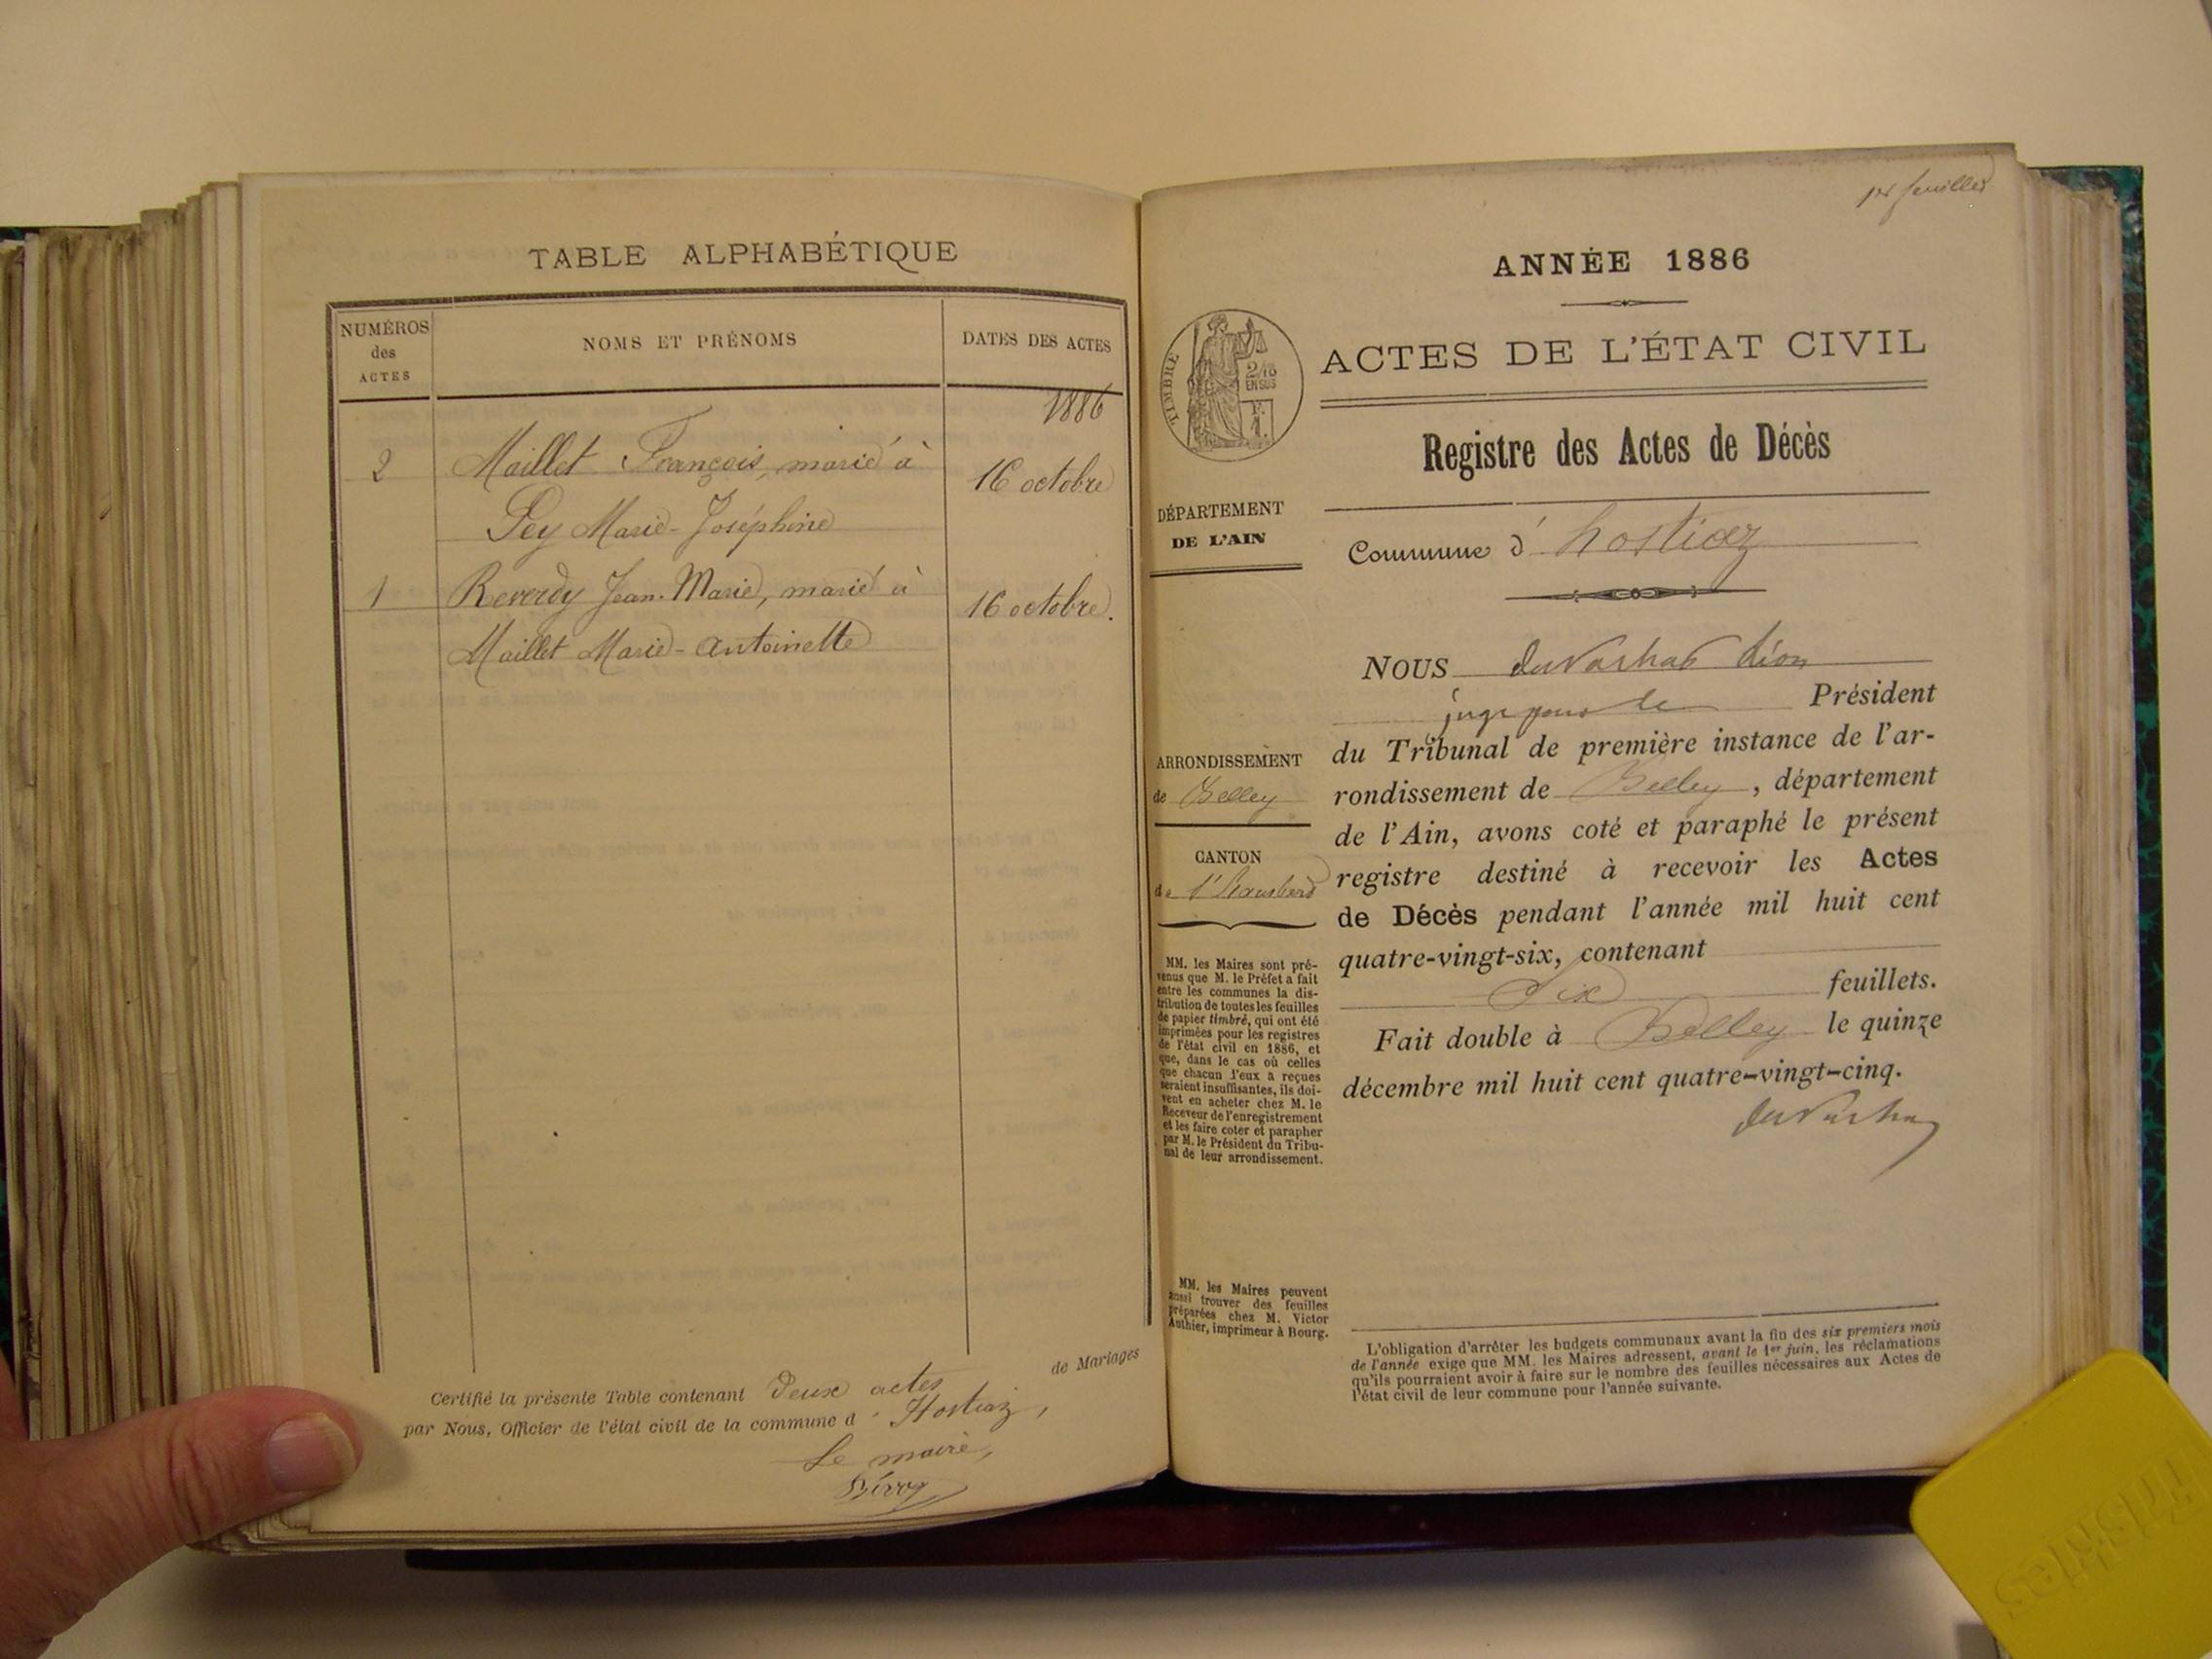 TABLE ALPHABÉTIQUE
NUMÉROS
des
ACTES
NOMS ET PRÉNOMS
DATES DES ACTES
1886
2 Maillet François, marié à 16 octobre
Pey Marie-Joséphine
1 Reverdy Jean-Marie, marié à 16 octobre.
Maillet Marie-Antoinette
Certifié la présente Table contenant Deux actes de Mariages
par Nous, Officier de l'état civil de la commune d' Hostiaz,
Le maire,
1er feuillet
ANNÉE 1886
TIMBRE
2/10
EN SUS
ACTES DE L'ÉTAT CIVIL
Registre des Actes de Décès
DÉPARTEMENT
DE L'AIN
Commune d' hostiaz
ARRONDISSEMENT
de Belley
CANTON
de
MM. les Maires sont pré-
venus que M. le Préfet a fait
entre les communes la dis-
tribution de toutes les feuilles
de papier timbré, qui ont été
imprimées pour les registres
de l'état civil en 1886, et
que, dans le cas où celles
que chacun d'eux a reçues
seraient insuffisantes, ils doi-
vent en acheter chez M. le
Receveur de l'enregistrement
et les faire coter et parapher
par M. le Président du Tribu-
nal de leur arrondissement.
MM. les Maires peuvent
aussi trouver des feuilles
préparées chez M. Victor
Authier, imprimeur à Bourg.
NOUS
juge pour le Président
du Tribunal de première instance de l'ar-
rondissement de Belley, département
de l'Ain, avons coté et paraphé le présent
registre destiné à recevoir les Actes
de Décès pendant l'année mil huit cent
quatre-vingt-six, contenant
Six feuillets.
Fait double à Belley le quinze
décembre mil huit cent quatre-vingt-cinq.
L'obligation d'arrêter les budgets communaux avant la fin des six premiers mois
de l'année exige que MM. les Maires adressent, avant le 1er juin, les réclamations
qu'ils pourraient avoir à faire sur le nombre des feuilles nécessaires aux Actes de
l'état civil de leur commune pour l'année suivante.